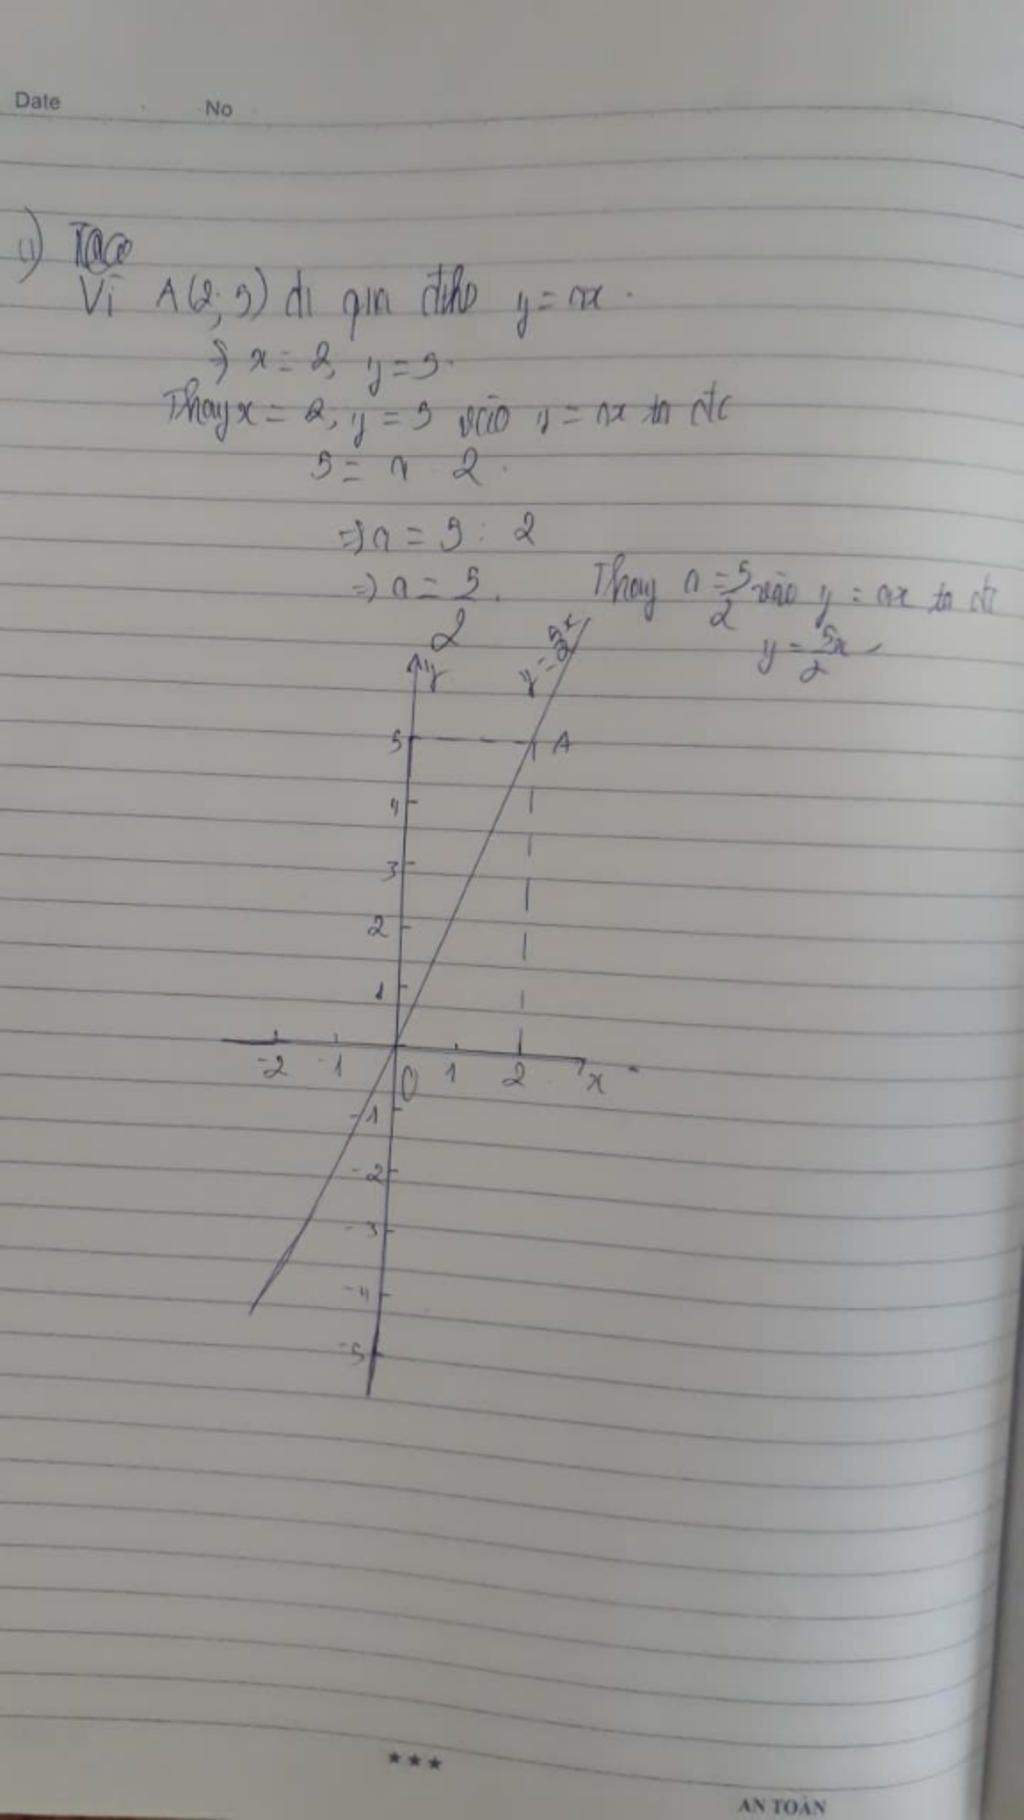 Date No
1)
Vì A(2; 5) đi qua đths y = ax.
=> x = 2, y = 5.
Thay x = 2; y = 5 vào y = ax ta đc
5 = a . 2.
=> a = 5 : 2
=> a = 5/2. Thay a = 5/2 vào y = ax ta đc
y = 5/2 x
y
y = 5/2 x
5 A
4
3
2
1
-2 -1 O 1 2 x
-1
-2
-3
-4
-5
★★★
AN TOÀN